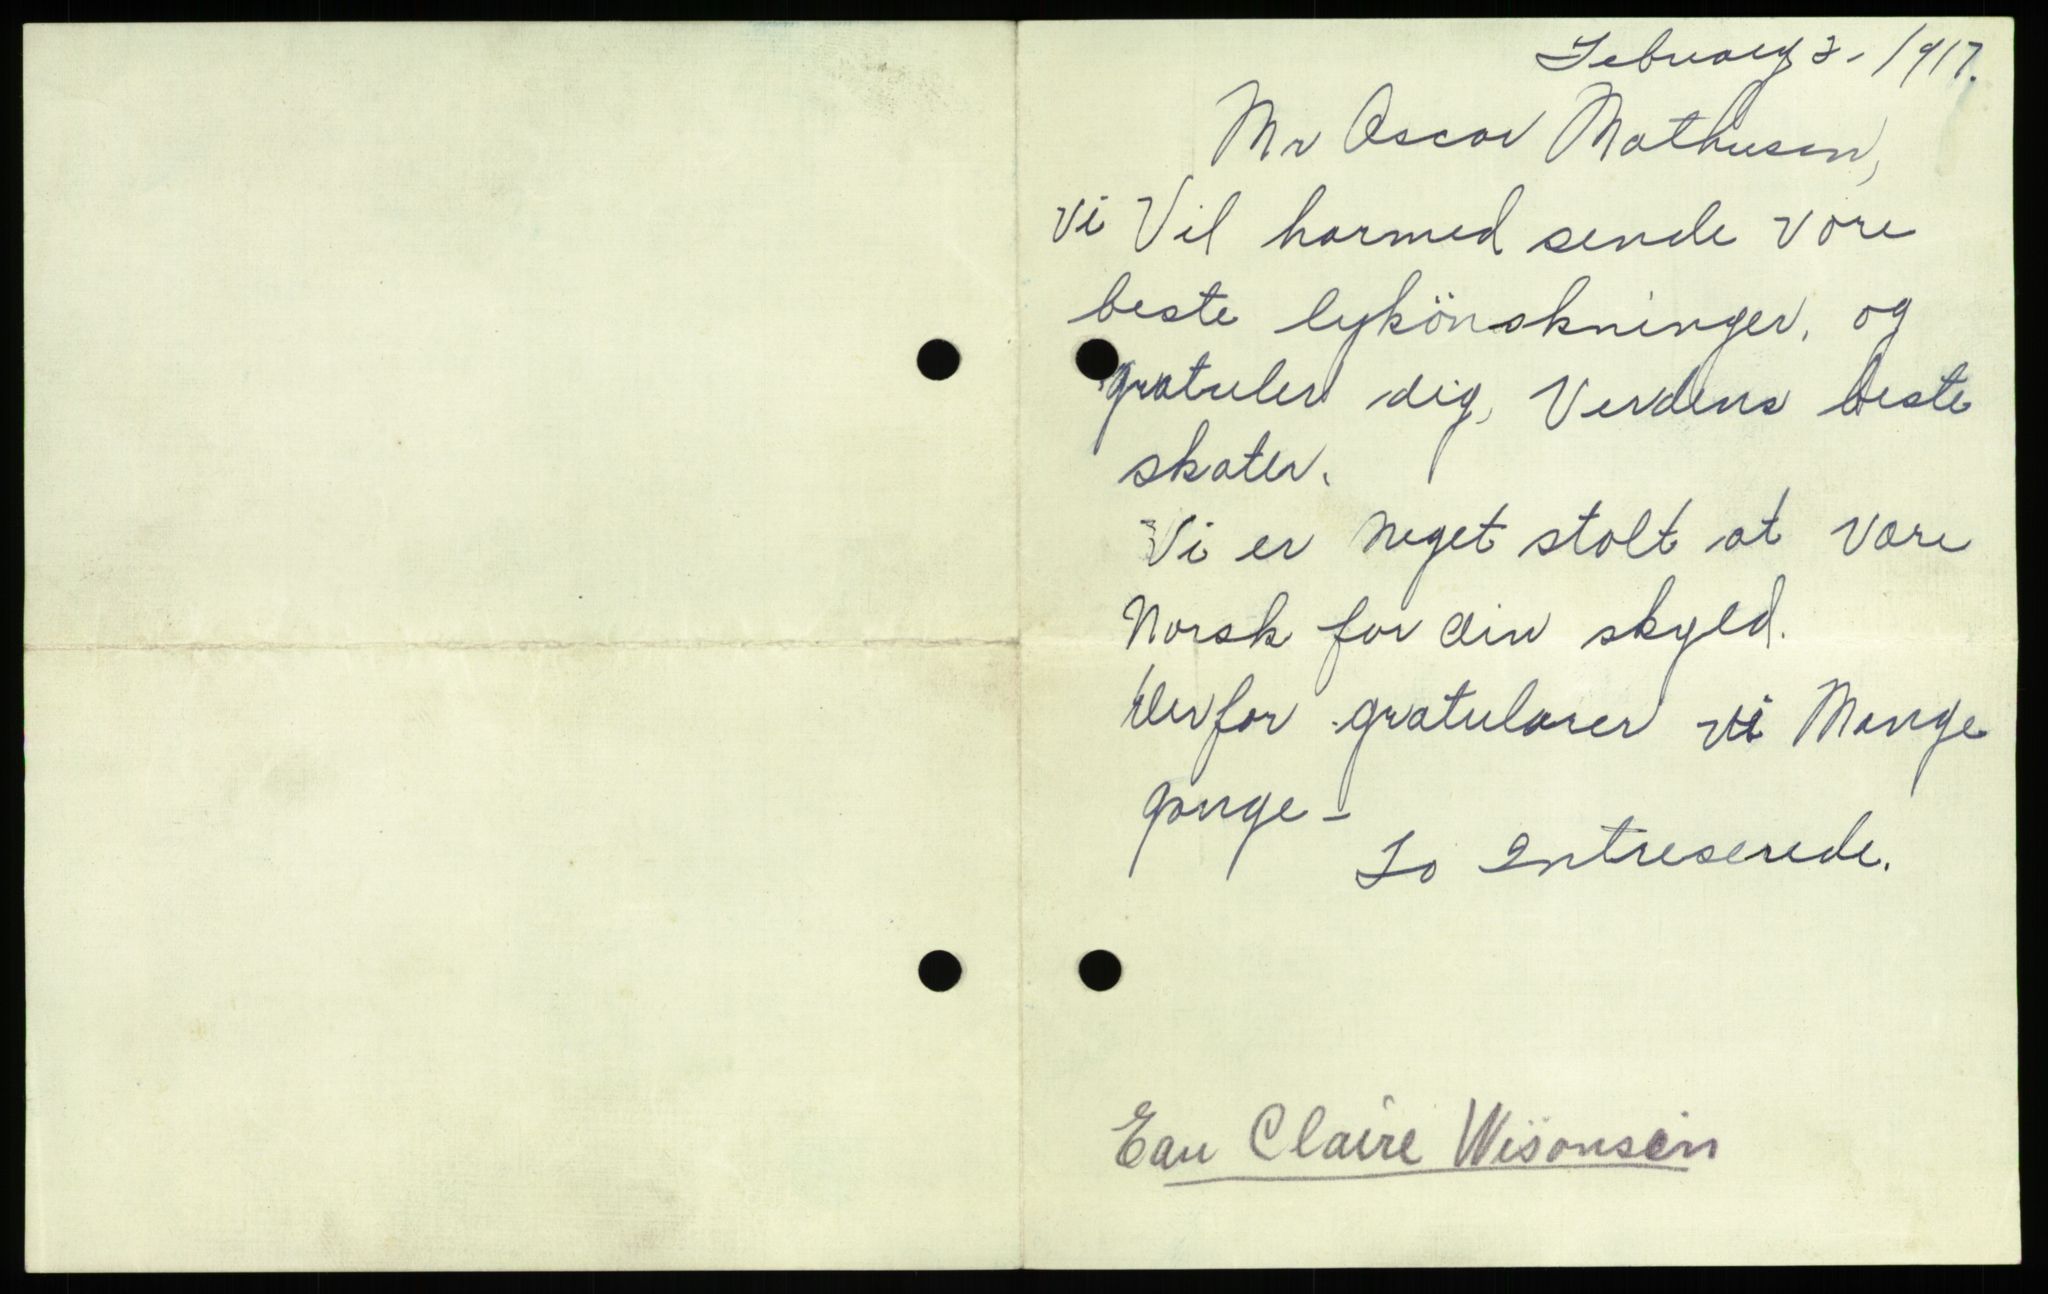 February 2 - 1917.
Mr Oscar Mathusen,
vi Vil harmed sende vore
beste lykönskninger, og
gratuler dig, Verdens beste
skater.
Vi er meget stolt at vare
Norsk for din skyld.
derfor gratularer vi Mange
gange -
To Intreserede.
Eau Claire Wisonsin